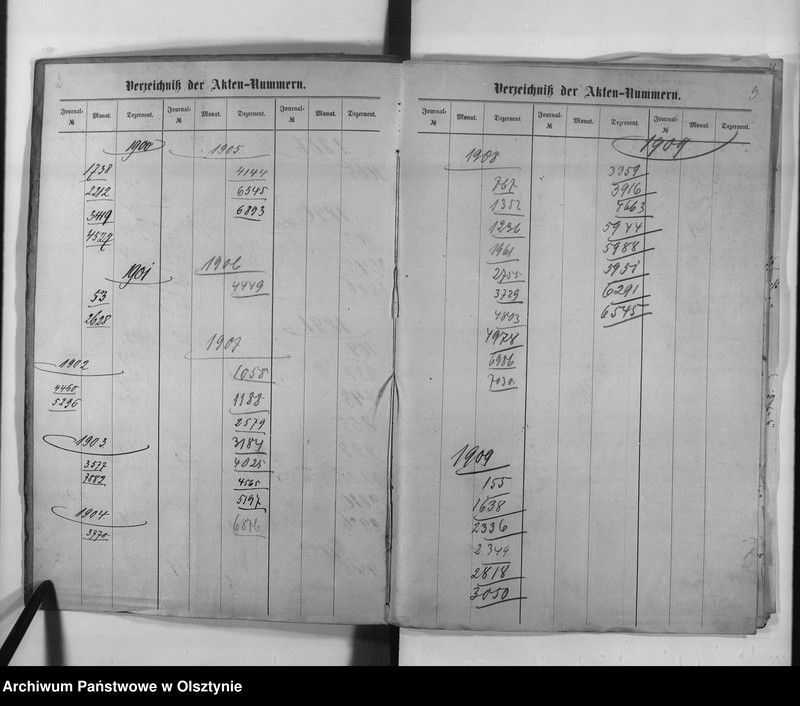 2
Verzeichniß der Akten-Nummern.
Journal- № Monat. Dezernent. Journal- № Monat. Dezernent. Journal- № Monat. Dezernent.
1900
1738
2212
3449
4527
1901
53
2628
1902
4460
5296
1903
3577
7882
1904
3770
1905
4144
6545
6893
1906
4449
1907
1058
1188
2579
3184
4025
4565
5197
6876
3
Verzeichniß der Akten-Nummern.
Journal- № Monat. Dezernent. Journal- № Monat. Dezernent. Journal- № Monat. Dezernent.
1908
767
1352
1236
1961
2755
3729
4803
4978
6906
7030
1909
155
1638
2336
2349
2818
3050
1909
3359
3916
4663
5944
5988
5951
6291
6545
Archiwum Państwowe w Olsztynie